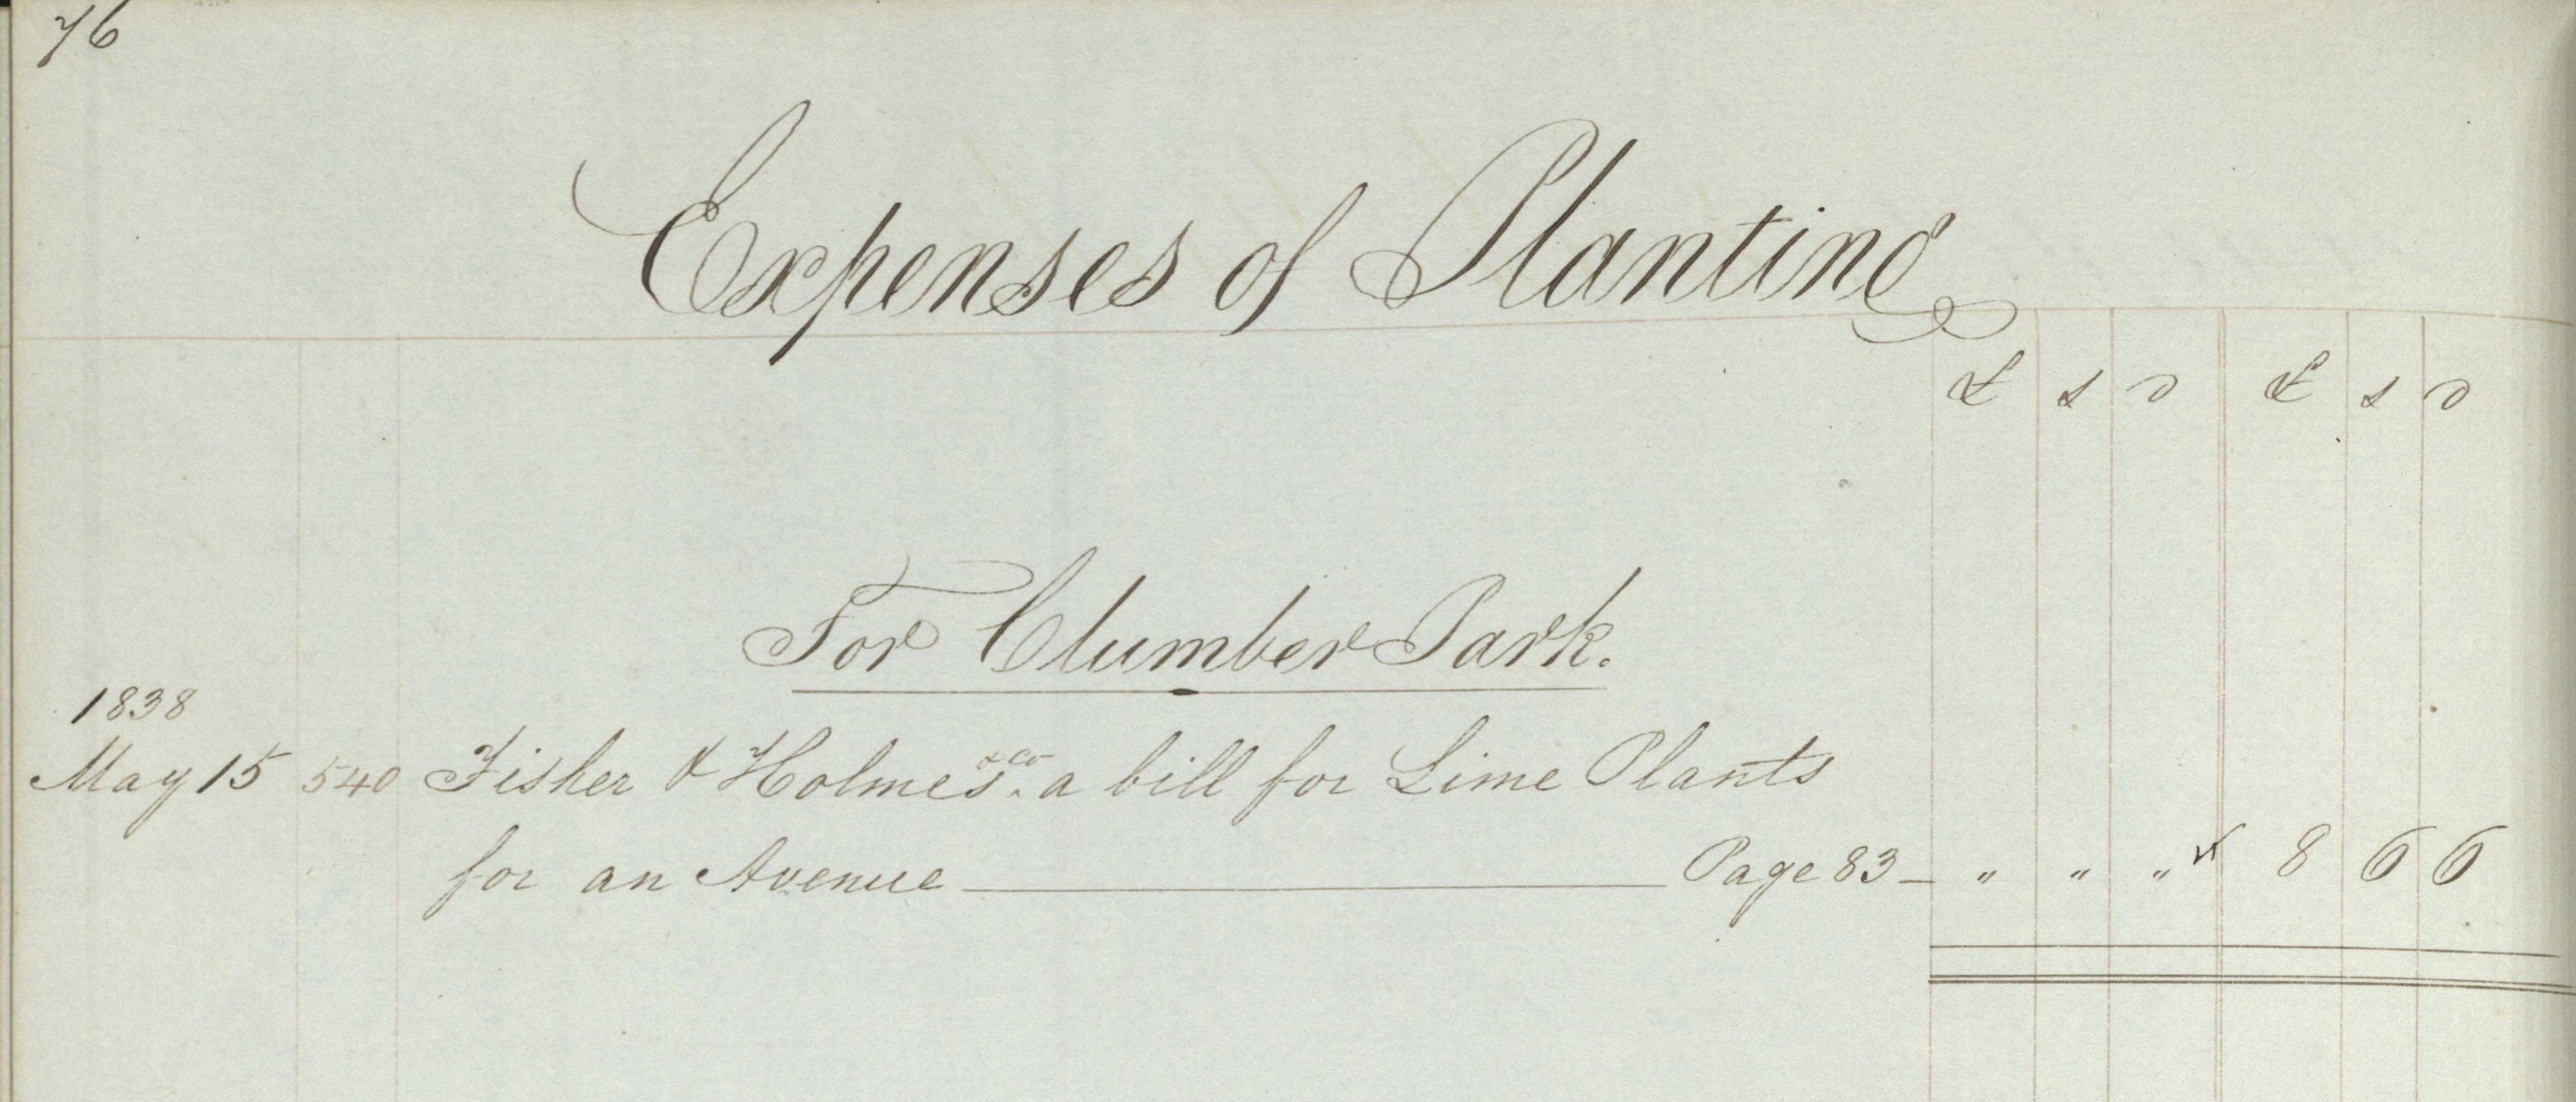 76
Expenses of Planting
£ s d £ s d
For Clumber Park.
1838
May 15 540 Fisher & Holmes & Co. a bill for Lime Plants
for an Avenue Page 83 " " " 8 6 6